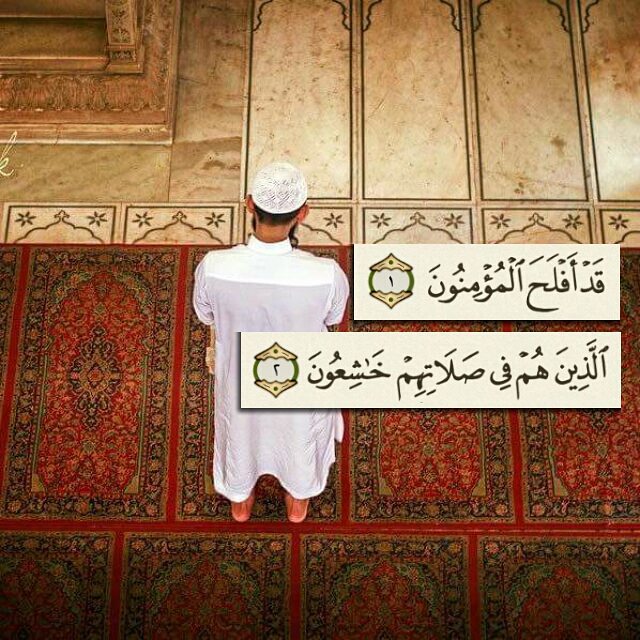 قَدْ أَفْلَحَ ٱلْمُؤْمِنُونَ ١
ٱلَّذِينَ هُمْ فِى صَلَاتِهِمْ خَٰشِعُونَ ٢